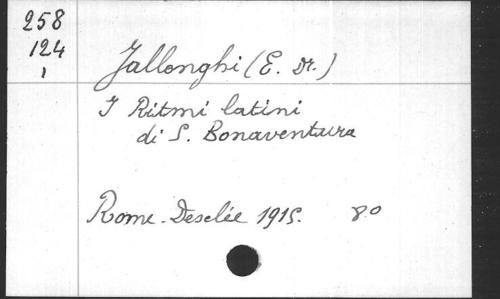 258
124
1
Jallonghi (E. M.)
I Ritmi latini
di S. Bonaventura
Rome. Desclée 1915. 8°